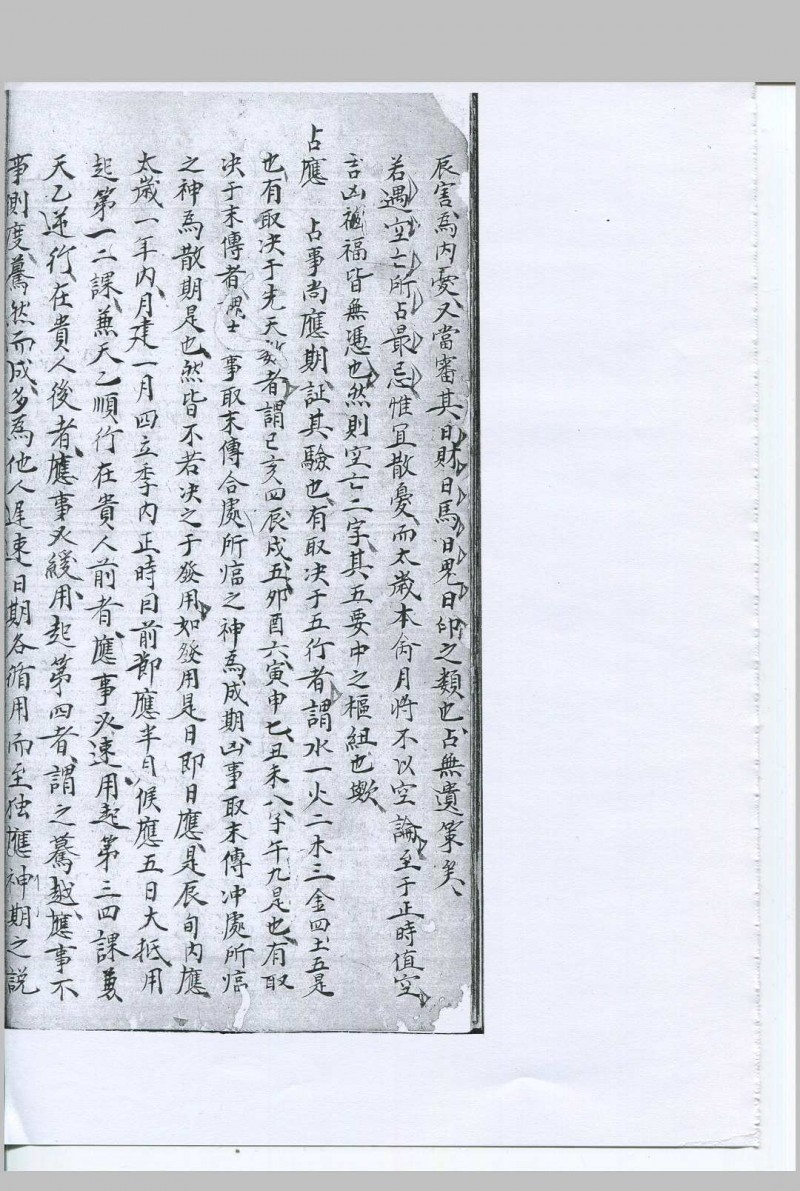 辰害爲内憂又當審其日財日馬日鬼日印之類也占無遺筭矣
若遇空亡所占最忌惟宜散憂而太歲本命月將不以空論至于正時值空
言凶禍福皆無憑也然則空亡二字其五要中之樞紐也歟
占應 占事尚應期証其驗也有取决于五行者謂水一火二木三金四土五是
也有取决于先天数者謂巳亥四辰戌五卯酉六寅申七丑未八子午九是也有取
决于末傳者 事取末傳合處所臨之神爲成期凶事取末傳冲處所臨
之神爲散期是也然皆不若决之于發用如發用是日即日應是辰旬内應
太歲一年内月建一月四立季内正時目前節應半月候應五日大抵用
起第一二課兼天乙順行在貴人前者應事必速用起第三四課兼
天乙逆行在貴人後者應事必緩用起第四者謂之驀越應事不
事則度驀然而成多爲他人遲速日期各循用而至独應神期之説